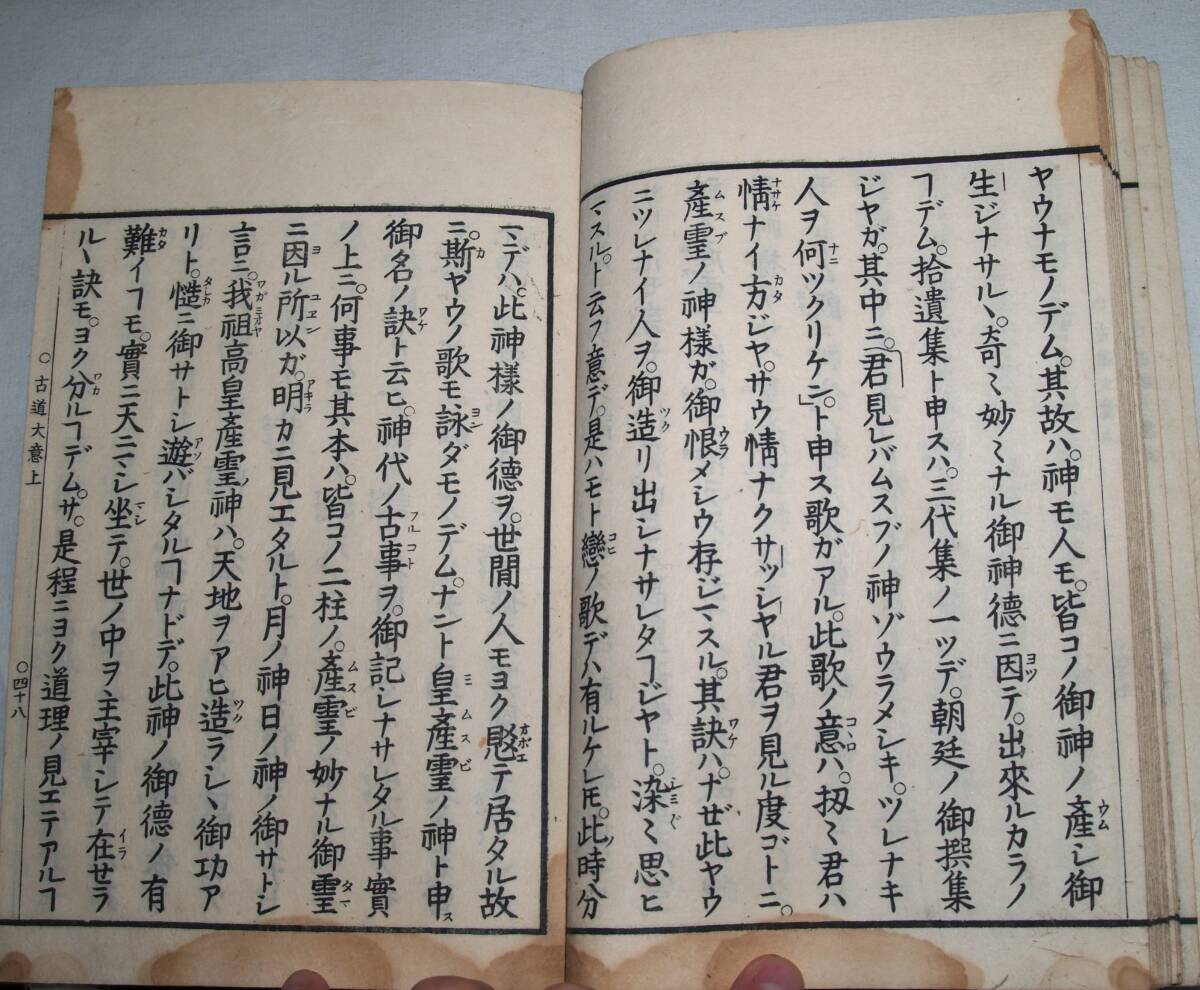 ヤウナモノデム。其故ハ。神モ人モ。皆コノ御神ノ產シ御
生ジナサルヽ。奇ミ妙ミナル御神德ニ因テ。出來ルカラノ
ヿデム。拾遺集ト申スハ。三代集ノ一ツデ。朝廷ノ御撰集
ジヤガ。其中ニ。「君見レバムスブノ神ゾウラメシキ。ツレナキ
人ヲ何ツクリケン」。ト申ス歌ガアル。此歌ノ意ハ。扨ミ君ハ
情ナイ方ジヤ。サウ情ナクサッシヤル君ヲ見ル度ゴトニ。
產霊ノ神様ガ。御恨メシウ存ジマスル。其訣ハ。ナゼ此ヤウ
ニツレナイ人ヲ。御造リ出シナサレタヿジヤト。染ミ思ヒ
マスル。ト云フ意デ。是ハモト戀ノ歌デハ有ルケレ𪜈。此時分
マデハ。此神様ノ御德ヲ。世間ノ人モヨク覺テ居タル故
ニ。斯ヤウノ歌モ、詠ダモノデム。ナント皇產霊ノ神ト申ス
御名ノ訣ト云ヒ。神代ノ古事ヲ。御記シナサレタル事實
ノ上ニ。何事モ其本ハ。皆コノ二柱ノ。產霊ノ妙ナル御霊
ニ因ル所以ガ。明カニ見エタルト。月ノ神日ノ神ノ御サトシ
言ニ。我祖高皇產霊ノ神ハ。天地ヲアヒ造ラシヽ御功ア
リト。慥ニ御サトシ遊バシタルヿナドデ。此神ノ御德ノ有
難イヿモ。實ニ天ニマシ坐テ。世ノ中ヲ主宰シテ在セラ
ルヽ訣モ。ヨク分ルヿデム。サ。是程ニヨク道理ノ見エテアルヿ
○古道大意上
○四十八